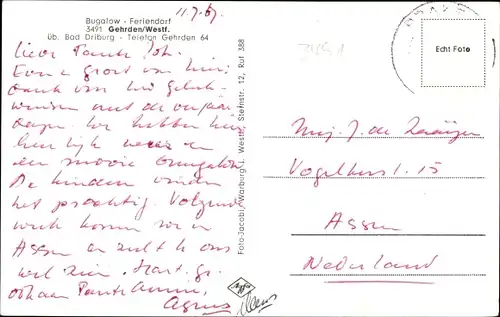 11.7.67.
Bugalow - Feriendorf
3491 Gehrden/Westf.
Üb. Bad Driburg - Telefon Gehrden 64
Lieve Tante Joh.
Even groet van hier
dank van
met de
dagen. We hebben hier
heerlijk weer en
een mooie Bungalow
De kinderen vinden
het prachtig. Volgende
week komen we in
Assen en zult U ons
wel zien. Hart. gr.
ook aan Tante Annie,
Agnes
Foto-Jacobi, Warburg i. Westf., Sternstr. 12, Ruf 388
Echt Foto
Mej. J. de
Vogelkers l. 15
Assen
Nederland
Agfa